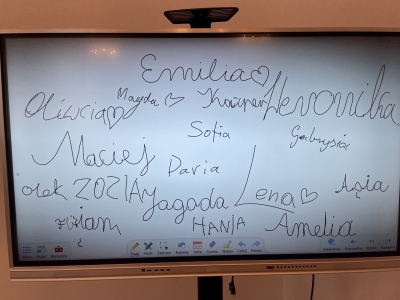 Emilia♡
Oliwcia♡ Magda♡ Kacper Weronika
Sofia Gabrysia
Maciej Daria
olek ZOZIA Jagada Lena♡ Asia
HANIA Amelia